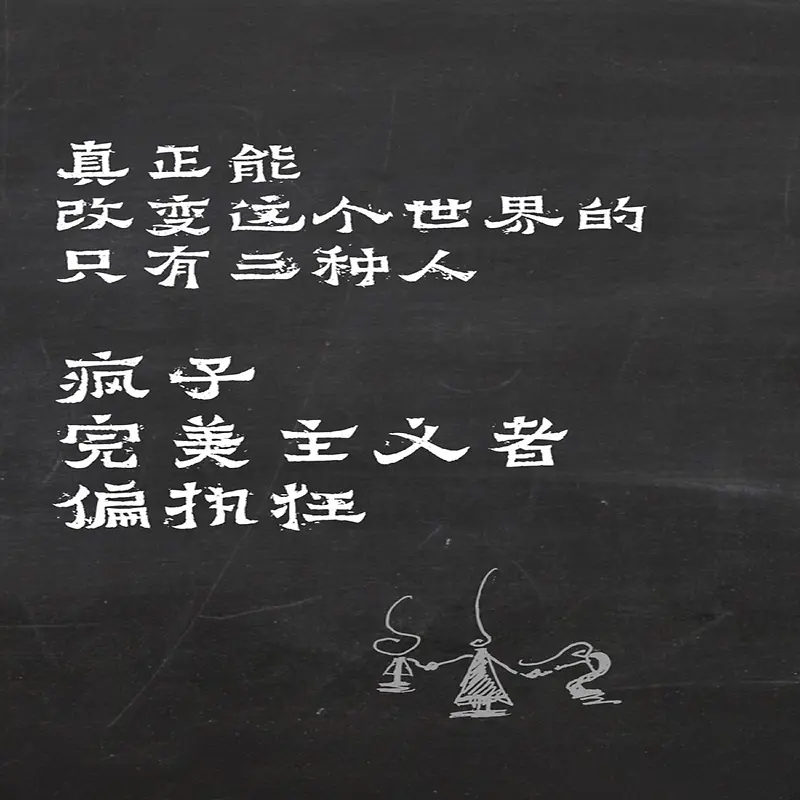 真正能
改变这个世界的
只有三种人
疯子
完美主义者
偏执狂